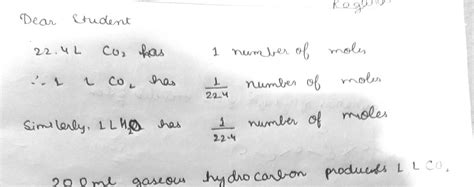 Dear Student
22.4L CO₂ has 1 number of moles
∴ 1 L CO₂ has 1/22.4 number of moles
Similerly, 1 L H₂O has 1/22.4 number of moles
200ml gaseous hydrocarbon produces 1 L CO₂